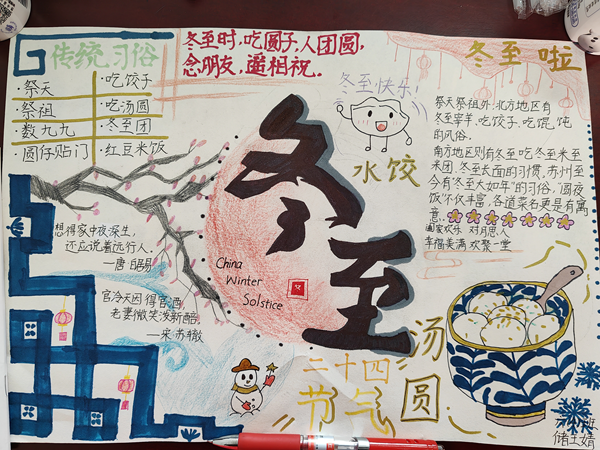 传统习俗
·祭天
·祭祖
·数九九
·圆仔贴门
·吃饺子
·吃汤圆
·冬至团
·红豆米饭
冬至时,吃圆子,人团圆,
念朋友,遥相祝.
冬至快乐!
水饺
冬至啦
祭天祭祖外,北方地区有
冬至宰羊、吃饺子、吃馄饨
的风俗。
南方地区则有冬至吃冬至米至
米团、冬至长面的习惯,苏州至
今有“冬至大如年”的习俗,“圆夜
饭”不仅丰富,各道菜名更是有寓
意。
阖家欢乐 对月思人
幸福美满 欢聚一堂
想得家中夜深坐,
还应说着远行人。
—唐·白居易
官冷无因得官酒,
老妻微笑泼新醅.
—宋·苏辙
冬至
China
Winter
Solstice
二十四
节气
汤圆
班